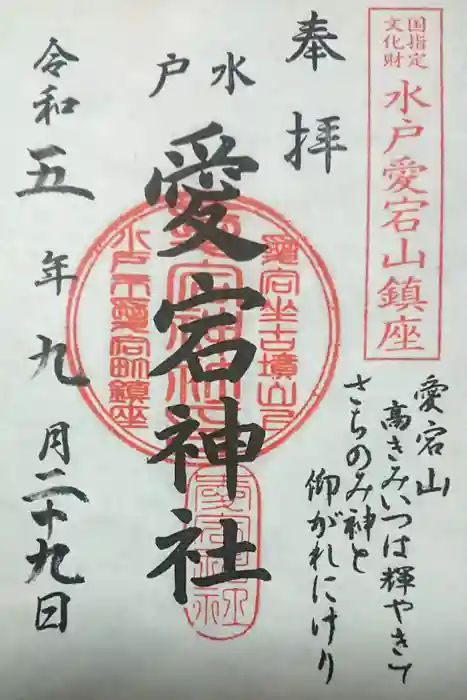 国指定
文化財
水戸愛宕山鎮座
奉拝
水戸
愛宕神社
令和五年九月二十九日
愛宕山
高きみいつは輝やきて
さちのみ神と
仰がれにけり
愛宕坐古墳山戸
愛宕神社
水戸市愛宕町鎮座
愛宕神社